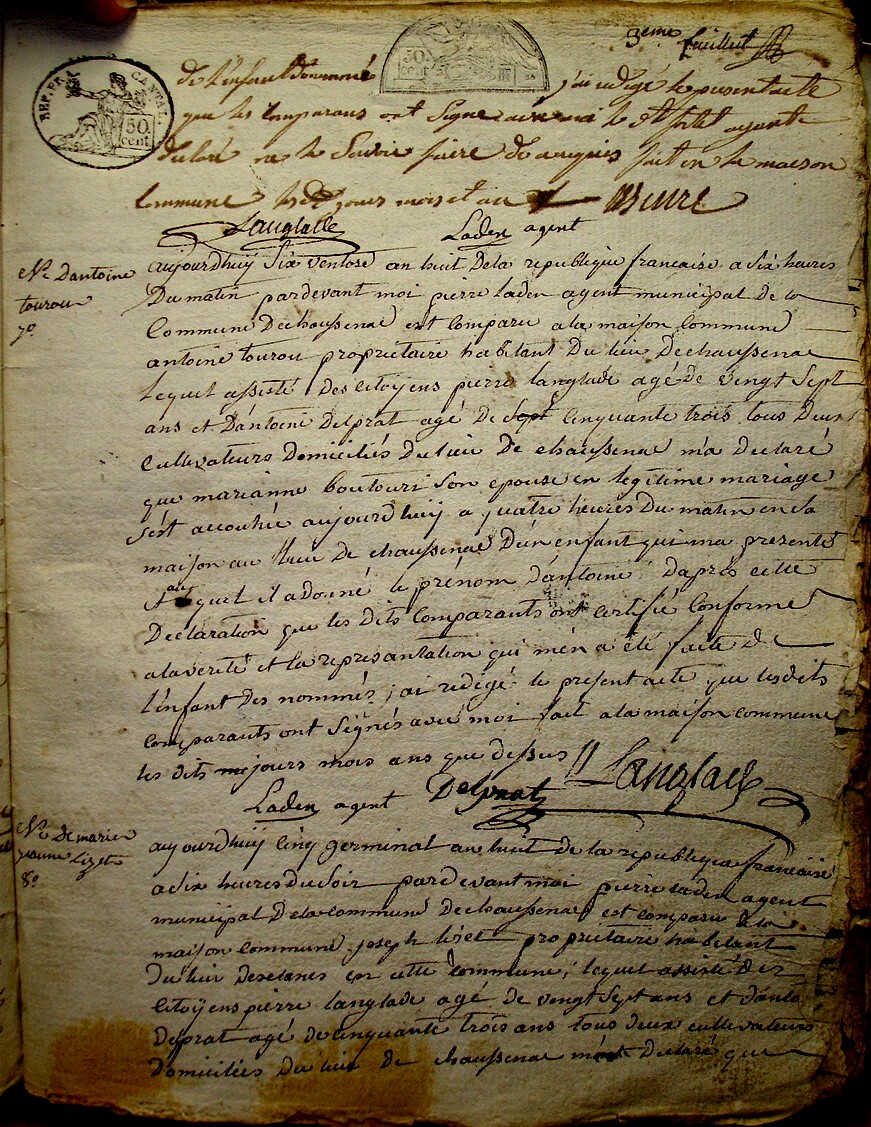 3eme feuillet
REP. FRA. CANTAL
50. cent
50. cent
de l'enfant denommé j'ai redigé le present acte
que les comparans ont signé avec moi le dt
declaré ne le savoir faire de ce requis fait en la maison
commune les dt jours mois et an
Langlade Laden agent
Nce Dantoine
tourou
7o
aujourdhuy six ventose an huit De la republique francaise a six heures
Du matin pardevant moi pierre laden agent municipal de la
Commune Dechaussenac est comparu a la maison commune
antoine tourou propriétaire habitant Du lieu Dechaussenac
Lequel assisté Des citoyens pierre langlade agé De vingt sept
ans et Dantoine Delprat agé De sept cinquante trois tous Deux
cultivateurs Domiciliés Du lieu De chaussenac m'a Declaré
que marianne boutouri son epouse en legitime mariage
s'est accouchée aujourdhuy a quatre heures Du matin en sa
maison au lieu De chaussenac D'un enfant qui ma presenté
et auquel il a donné le prénom d'antoine Daprés cette
Declaration que les dits comparants ont certifié conforme
a la verité et la representation qui men a été faite de
l'enfant Des nommés; j'ai redigé le present acte que lesdits
comparants ont signés avec moi fait a la maison commune
les dits jours mois ans que dessus // Langlade
Laden agent Delprat
Nce De marie
jeanne Lizet
8o
aujourdhuy cinq germinal an huit de la republique francaise
a six heures Du soir pardevant moi pierre laden agent
municipal De la commune Dechaussenac est comparu a la
maison commune joseph lizet propriétaire habitant
Du lieu en cette commune; lequel assisté des
citoyens pierre langlade agé de vingt sept ans et Danto
Delprat agé de cinquante trois ans tous deux cultivateurs
Domiciliés Du lieu de chaussenac Declaré que